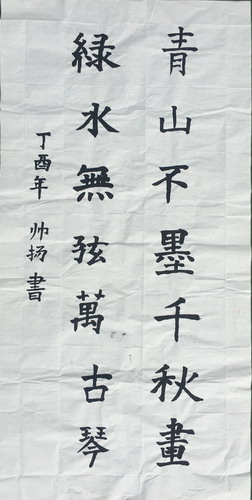 青山不墨千秋畫
綠水無弦萬古琴
丁酉年 帅扬書